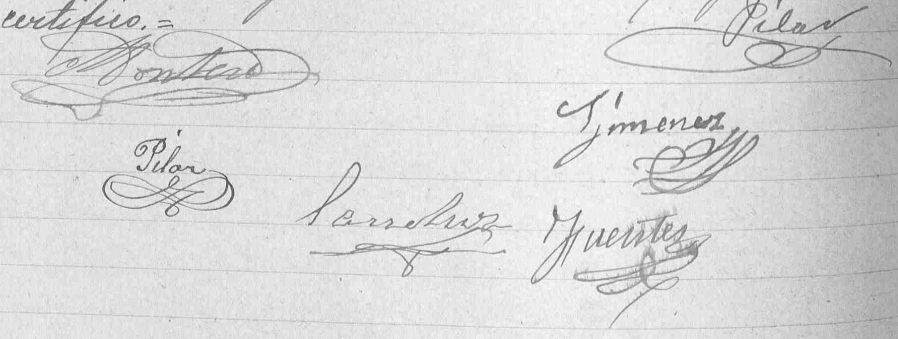 certifico.=
Pilar
Montero
Gimenez
Pilar
Fuentes